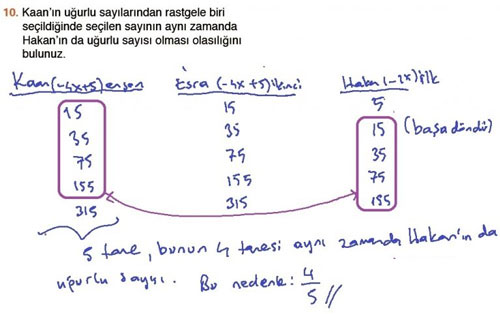 10. Kaan'ın uğurlu sayılarından rastgele biri
seçildiğinde seçilen sayının aynı zamanda
Hakan'ın da uğurlu sayısı olması olasılığını
bulunuz.
Kaan (-4x+5) en son Esra (-4x+5) ikinci Hakan (-2x) ilk
15 15 5
35 35 15 (başa döndür)
75 75 35
155 155 75
315 315 155
5 tane, bunun 4 tanesi aynı zamanda Hakan'ın da
uğurlu sayısı. Bu nedenle: 4/5 //